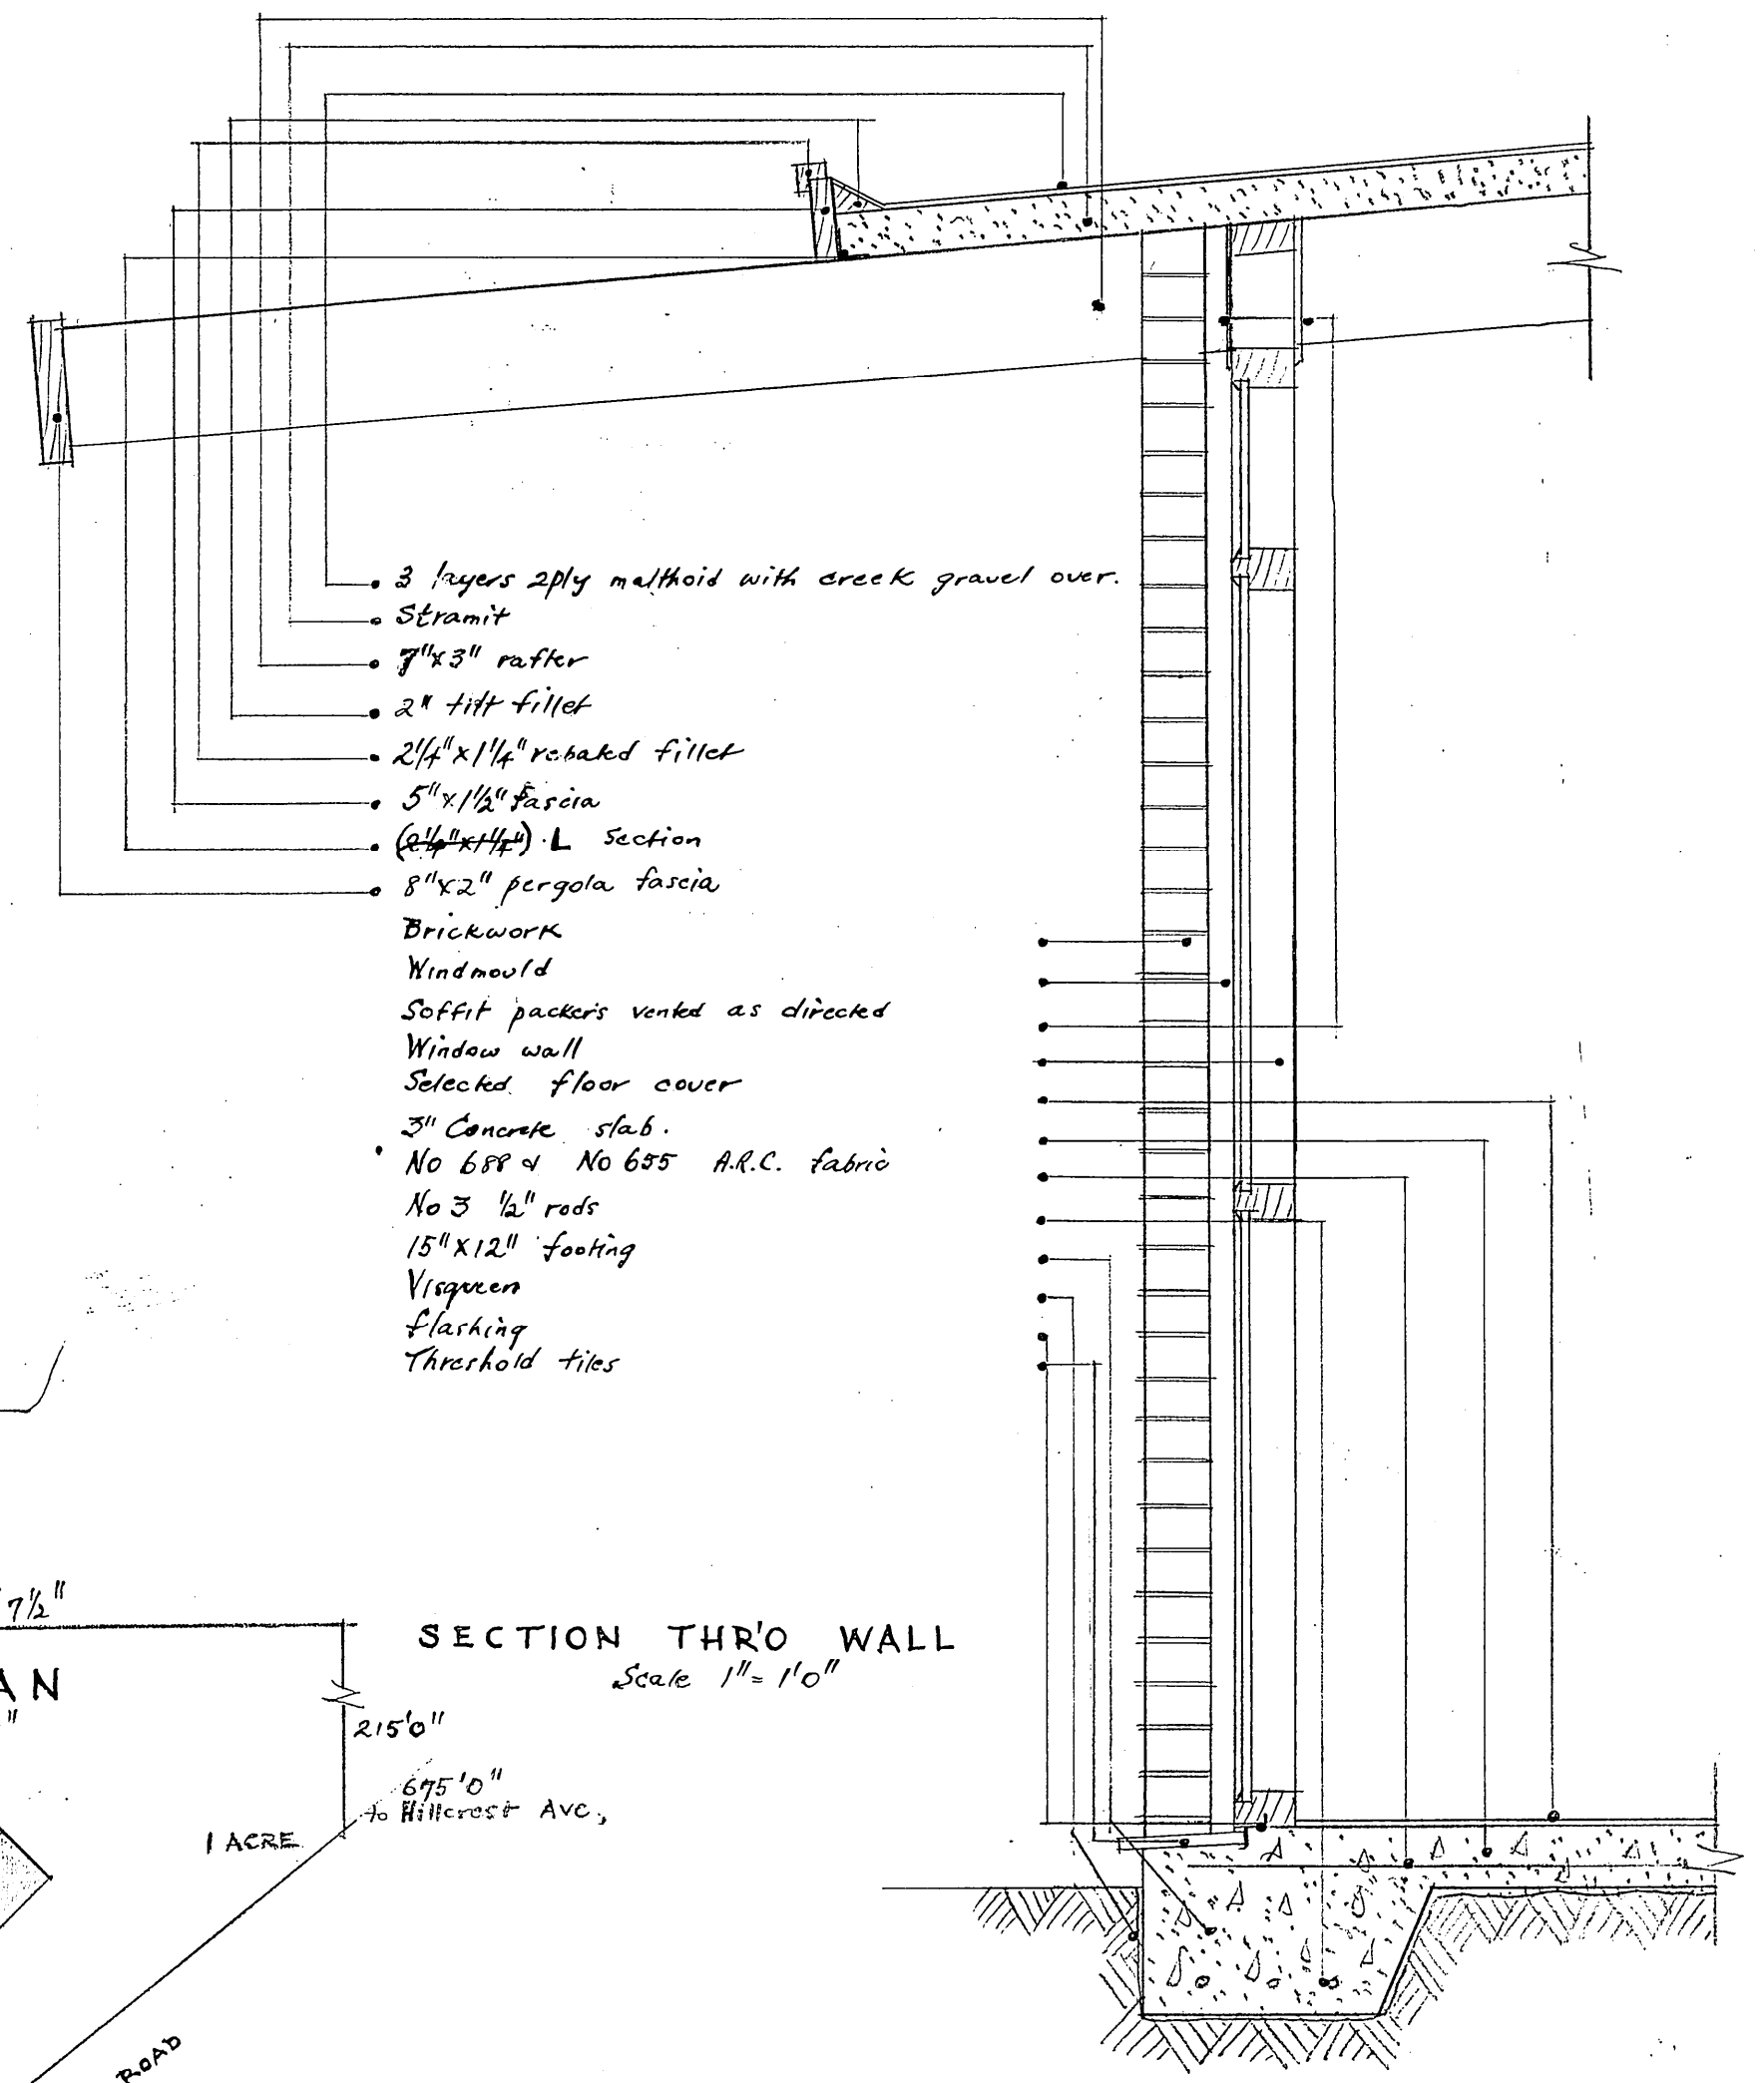 3 layers 2ply malthoid with creek gravel over.
Stramit
7"x3" rafter
2" tilt fillet
2¼"x1¼" rebated fillet
5"x1½" fascia
(2¼"x1¼") L section
8"x2" pergola fascia
Brickwork
Windmould
Soffit packers vented as directed
Window wall
Selected floor cover
3" Concrete slab.
No 688 & No 655 A.R.C. fabric
No 3 ½" rods
15"X12" footing
Visqueen
flashing
Threshold tiles
7½"
SECTION THR'O WALL
Scale 1" = 1'0"
AN
"
215'0"
675'0"
to Hillcrest Ave,
1 ACRE
ROAD